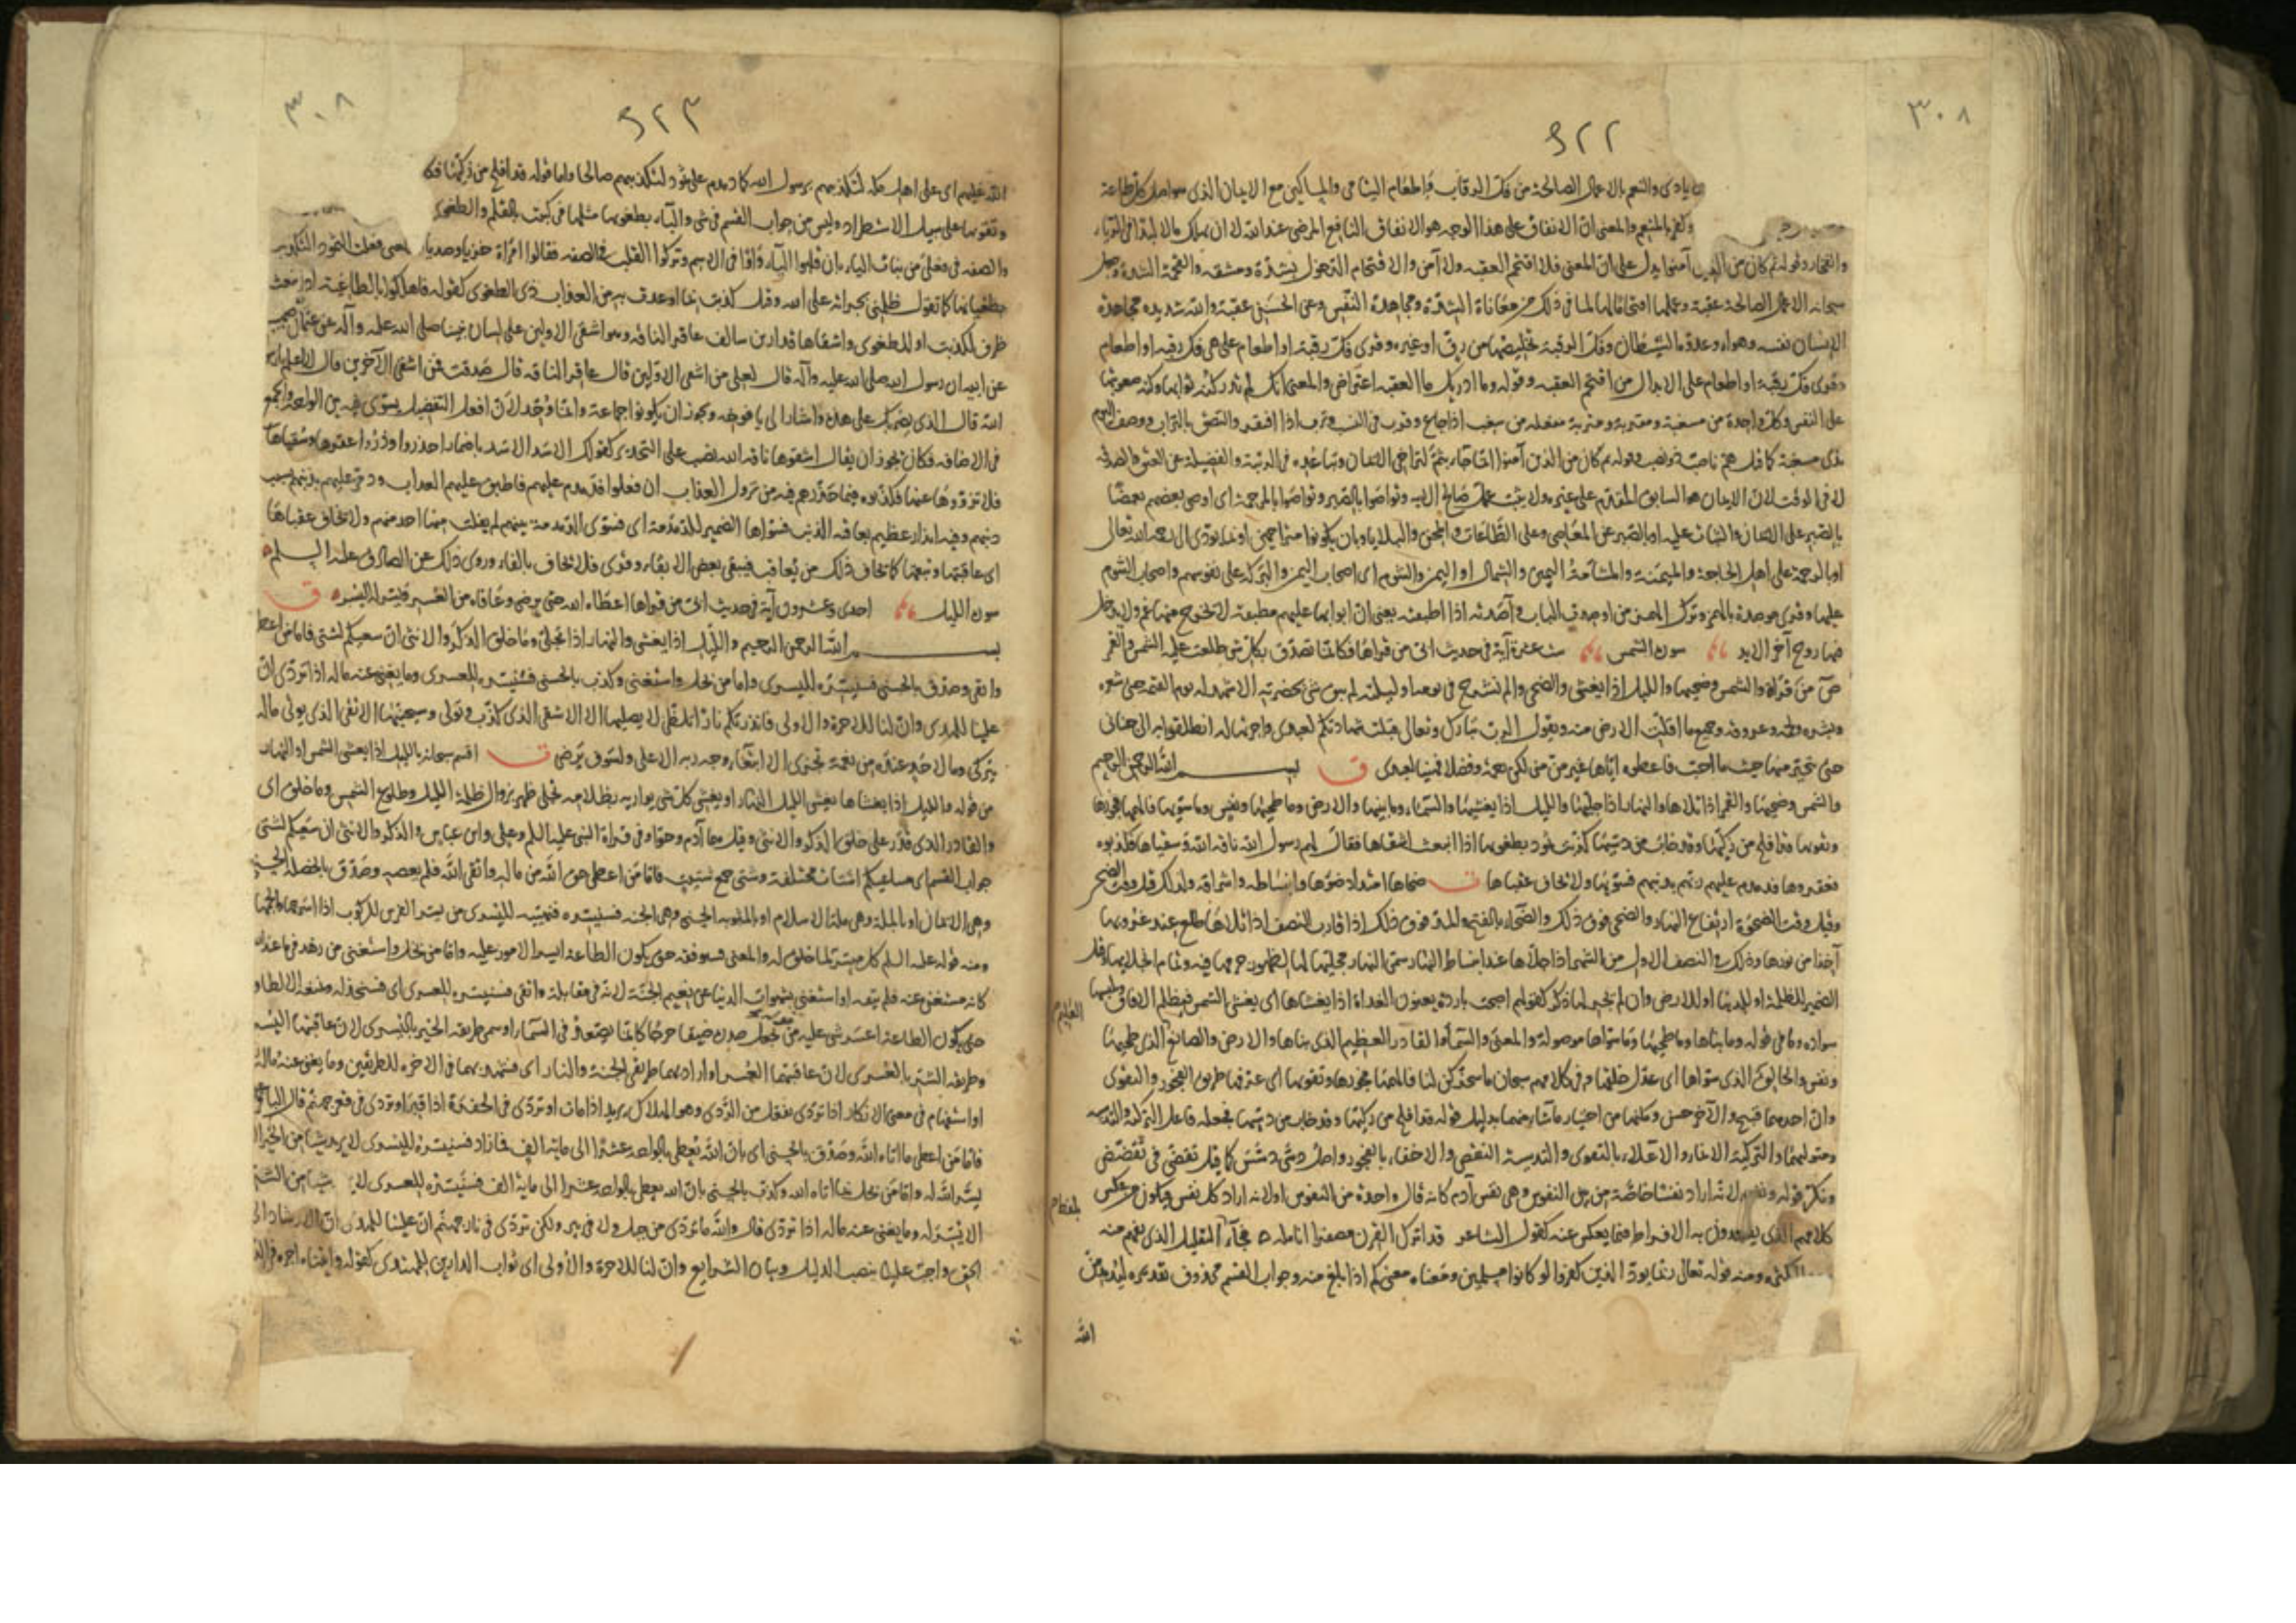 ٣٠٨
٩٢٢
بايادي والنعم بالاعمال الصالحة من فك الرقاب واطعام اليتامى والمساكين مع الايمان الذي هو اصل كل طاعة
وكفر بالمنعم والمعنى ان الانفاق على هذا الوجه هو الانفاق النافع المرضي عند الله لا ان يهلك مالا لبدا في الرياء
والفخار وقوله ثم كان من الذين آمنوا يدل على ان المعنى فلا اقتحم العقبه ولا آمن والاقتحام الدخول بشدة ومشقه والقحمة الشدة وجعل
سبحانه الاعمال الصالحة عقبة وعملها اقتحاما لها لما في ذلك من معاناة المشقة ومجاهدة النفس وعن الحسن عقبة والله شديده مجاهدة
الانسان نفسه وهواه وعدوه الشيطان وفك الرقبة تخليصها من رق او غيره وقرئ فك رقبة او اطعام على هي فك رقبه او اطعام
وقرئ فك رقبة او اطعام على الابدال من اقتحم العقبه وقوله وما ادريك ما العقبه اعتراض والمعنى انك لم تدر كنه ثوابها وكنه صعوبتها
على النفس وكل واحدة من مسغبة ومقربة ومتربة مفعلة من سغب اذا جاع وقرب في النسب وترب اذا افتقر والتصق بالتراب ووصف اليوم
بذي مسغبة كما قيل هم ناصب ذو نصب وقوله ثم كان من الذين آمنوا انما جاء بثم لتراخي الايمان وتباعده في الرتبة والفضيلة عن العتق والصدقة
لا في الوقت لان الايمان هو السابق المقدم على غيره ولا يثبت عمل صالح الا به وتواصوا بالصبر وتواصوا بالمرحمة اي اوصى بعضهم بعضا
بالصبر على الايمان والثبات عليه او بالصبر عن المعاصي وعلى الطاعات والمحن والبلايا وبان يكونوا متراحمين او بما يؤدي الى رحمة الله تعالى
او بالرحمة على اهل الحاجة والميمنة والمشأمة اليمين والشمال او اليمن والشوم اي اصحاب اليمن والبركة على نفوسهم واصحاب الشوم
عليها وقرئ موصدة بالهمز وترك الهمز من اوصدت الباب و آصدته اذا اطبقته يعني ان ابوابها عليهم مطبقة لا يخرج منها غم ولا يدخل
فيها روح آخر الابد سورة الشمس ست عشرة آية في حديث ابي من قراها فكانما تصدق بكل شي طلعت عليه الشمس والقمر
ص من قراة والشمس وضحيها والليل اذا يغشى والضحى والم نشرح في يومه او ليلته لم يبق شي بحضرته الا شهد له يوم القيمة حتى شعره
وبشره ولحمه وعروقه وجميع ما اقلت الارض منه ويقول الرب تبارك وتعالى قبلت شهادتكم لعبدي واجزتها له انطلقوا به الى جناني
حتى يتخير منها حيث ما احب فاعطوه اياها غير من مني لكن رحمة وفضلا فهنيئا لعبدي ق بسم الله الرحمن الرحيم
والشمس وضحيها والقمر اذا تلاها والنهار اذا جليها والليل اذا يغشيها والسماء وما بنيها والارض وما طحيها ونفس وما سويها فالهمها فجورها
وتقويها قد افلح من زكيها وقد خاب من دسيها كذبت ثمود بطغويها اذ انبعث اشقاها فقال لهم رسول الله ناقة الله وسقياها فكذبوه
فعقروها فدمدم عليهم ربهم بذنبهم فسويها ولا يخاف عقباها ت ضحاها امتداد ضوءها وانبساطه واشراقه ولذلك قيل وقت الضحى
وقيل وقت الضحوة ارتفاع النهار والضحى فوق ذلك والضحاء بالفتح والمد فوق ذلك اذا قارب النصف اذا تلاها طلع عند غروبها
آخذا من نورها وذلك في النصف الاول من الشهر اذا جلاها عند انبساط النهار سمي النهار مجليا لها لظهور جرمها فيه وتمام انجلائها وقيل
الضمير للظلمة او للدنيا او للارض وان لم يجر لها ذكر كقولهم اصبحت باردة يعنون الغداة اذا يغشاها اي يغشي الشمس فيظلم الافاق ويلبسها
سواده وما في قوله وما بناها وما طحيها وما سواها موصولة والمعنى والسماء والقادر العظيم الذي بناها والارض والصانع الذي طحيها
العليم
ونفس والخالق الذي سواها اي عدل خلقها وفي كلامهم سبحان ما سخركن لنا فالهمها فجورها وتقويها اي عرفها طريق الفجور والتقوى
وان احدهما قبيح والآخر حسن ومكنها من اختيار ما شاء منهما بدليل قوله قد افلح من زكيها وقد خاب من دسيها فجعله فاعل التزكية والتدسيه
ومتوليهما والتزكية الانماء والاعلاء بالتقوى والتدسية النقص والاخفاء بالفجور واصل دسى دسس كما قيل تقضى في تقضض
ونكر قوله ونفس لانه اراد نفسا خاصة من بين النفوس وهي نفس آدم كانه قال واحدة من النفوس او لانه اراد كل نفس ويكون من عكس
كلامهم الذي يقصدون به الافراط فيما يعكس عنه كقول الشاعر قد اترك القرن مصفرا انامله فجاء بلفظ التقليل الذي يفهم منه
بلفظ
الكثره ومنه قوله تعالى ربما يود الذين كفروا لو كانوا مسلمين ومعناه معنى كم اذا بلغ منه وجواب القسم محذوف تقديره ليدمدمن
الله
٣٠٨
٩٢٣
الله عليهم اي على اهل مكة لتكذيبهم برسول الله كما دمدم على ثمود لتكذيبهم صالحا واما قوله قد افلح من زكيها فكلام
وتقويها على سبيل الاستطراد وليس من جواب القسم في شي والباء بطغويها مثلها في كتبت بالقلم والطغوى
والصفة في فعلى من بنات الياء بان قلبوا الياء واوا في الاسم وتركوا القلب في الصفه فقالوا امراة خزيا وصديا يعني فعلت الثمود التكذيب
بطغيانها كما تقول ظلمني بجراته على الله وقيل كذبت بما اوعدت به من العذاب ذي الطغوى كقوله فاهلكوا بالطاغية اذ انبعث
ظرف لكذبت او للطغوى واشقاها قدار بن سالف عاقر الناقة وهو اشقى الاولين على لسان نبينا صلى الله عليه وآله عن عثمان بن صهيب
عن ابيه ان رسول الله صلى الله عليه وآله قال لعلي من اشقى الاولين قال عاقر الناقة قال صدقت فمن اشقى الآخرين قال لا اعلم يا رسول
الله قال الذي يضربك على هذه واشار الى يافوخه ويجوز ان يكونوا جماعة وانما وحد لان افعل التفضيل يستوي فيه بين الواحد والجمع
في الاضافة فكان يجوز ان يقال اشقوها ناقة الله نصب على التحذير كقولك الاسد الاسد باضمار احذروا وذروا عقرها وسقياها
فلا تزووها عنها فكذبوه فيما حذرهم فيه من نزول العذاب ان فعلوا فدمدم عليهم فاطبق عليهم العذاب ودمر عليهم بذنبهم بسبب
ذنبهم وفيه انذار عظيم بعاقبة الذنب فسواها الضمير للدمدمة اي فسوى الدمدمة بينهم لم يفلت منها احد منهم ولا يخاف عقباها
اي عاقبتها وتبعتها كما يخاف ذلك من يعاقب فيبقي بعض الابقاء وقرئ فلا يخاف بالفاء وروي ذلك عن الصادق عليه السلم
سورة الليل احدى وعشرون آية في حديث ابي من قراها اعطاه الله حتى يرضى وعافاه من العسر ويسر له اليسره ق
بسم الله الرحمن الرحيم والليل اذا يغشى والنهار اذا تجلى وما خلق الذكر والانثى ان سعيكم لشتى فاما من اعطى
واتقى وصدق بالحسنى فسنيسره لليسرى واما من بخل واستغنى وكذب بالحسنى فسنيسره للعسرى وما يغني عنه ماله اذا تردى ان
علينا للهدى وان لنا للاخرة والاولى فانذرتكم نارا تلظى لا يصليها الا الاشقى الذي كذب وتولى وسيجنبها الاتقى الذي يوتي ماله
يتزكى وما لاحد عنده من نعمة تجزى الا ابتغاء وجه ربه الاعلى ولسوف يرضى ت اقسم سبحانه بالليل اذا يغشى الشمس او النهار
من قوله والليل اذا يغشاها يغشي الليل النهار او يغشى كل شي يواريه بظلامه تجلى ظهر بزوال ظلمة الليل وطلوع الشمس وما خلق اي
والقادر الذي قدر على خلق الذكر والانثى وقيل هما آدم وحواء وفي قراة النبي عليه السلم وعلي وابن عباس والذكر والانثى ان سعيكم لشتى
جواب القسم اي مساعيكم اشتات مختلفة وشتى جمع شتيت فاما من اعطى حق الله من ماله واتقى الله فلم يعصه وصدق بالخصلة الحسنى
وهي الايمان او بالملة وهي ملة الاسلام او بالمثوبة الحسنى وهي الجنه فسنيسره فنهيئه لليسرى من يسر الفرس للركوب اذا اسرجها والجمها
ومنه قوله عليه السلم كل ميسر لما خلق له والمعنى فسنوفقه حتى يكون الطاعة ايسر الامور عليه واما من بخل واستغنى من زهد فيما عند الله
كانه مستغن عنه فلم يتقه او استغنى بشهوات الدنيا عن نعيم الجنة لانه في مقابلة واتقى فسنيسره للعسرى اي فسنخذله ونمنعه الالطاف
حتى يكون الطاعة اعسر شي عليه من يجعل صدره ضيقا حرجا كانما يصعد في السماء او سمى طريقة الخير باليسرى لان عاقبتها اليسر
وطريقة الشر بالعسرى لان عاقبتها العسر او اراد بهما طريقي الجنة والنار اي فسنهديهما في الاخره للطريقين وما يغني عنه ماله
او استفهام في معنى الانكار اذا تردى تفعل من الردى وهو الهلاك يريد اذا مات او تردى في الحفرة اذا قبر او تردى في قعر جهنم قال الباقر
فاما من اعطى مما اتاه الله وصدق بالحسنى اي بان الله يعطي بالواحد عشرا الى ماية الف فما زاد فسنيسره لليسرى لا يريد شيئا من الخير الا
يسر الله له واما من بخل بما اتاه الله وكذب بالحسنى بان الله يعطي بالواحد عشرا الى ماية الف فسنيسره للعسرى لا شيئا من الشر
الا يسر له وما يغني عنه ماله اذا تردى قال والله ما تردى من جبل ولا في بير ولكن تردى في نار جهنم ان علينا للهدى ان الارشاد الى
الحق واجب علينا بنصب الدليل وبيان الشرايع وان لنا للاخرة والاولى اي ثواب الدارين للمهتدي كقوله واتيناه اجره في الدنيا